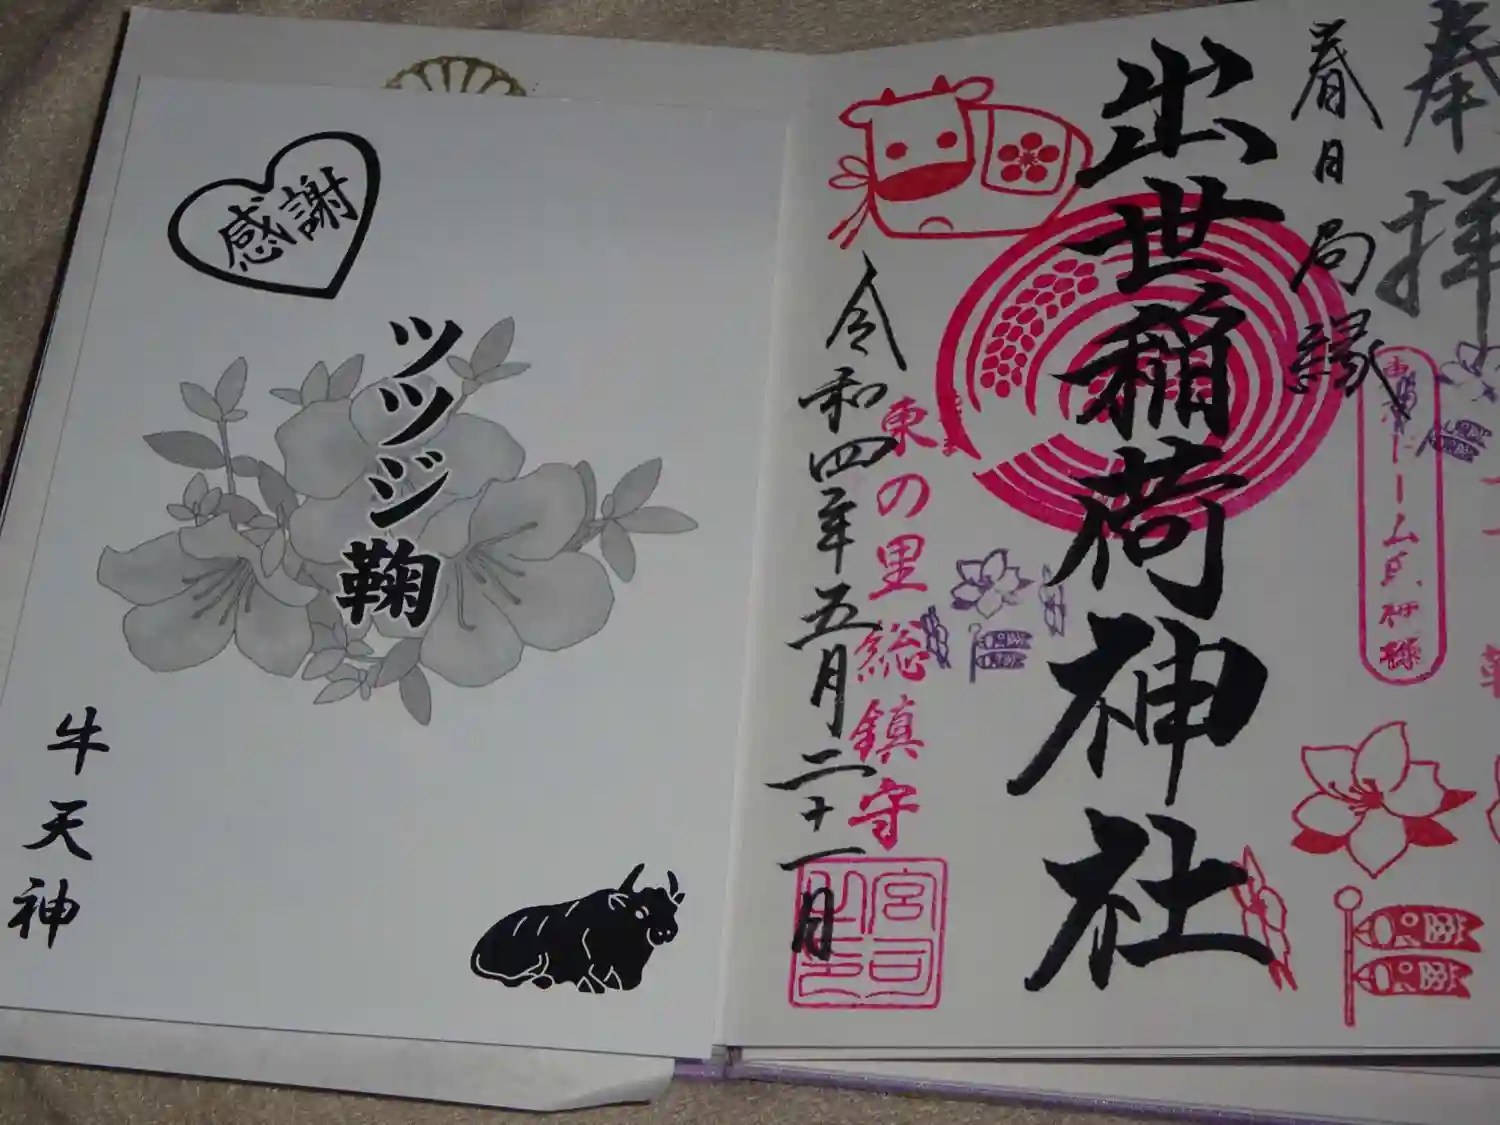 奉拝
春日局縁
出世稲荷神社
東の里総鎮守
令和四年五月二十一日
宮司之印
感謝
ツツジ鞠
牛天神